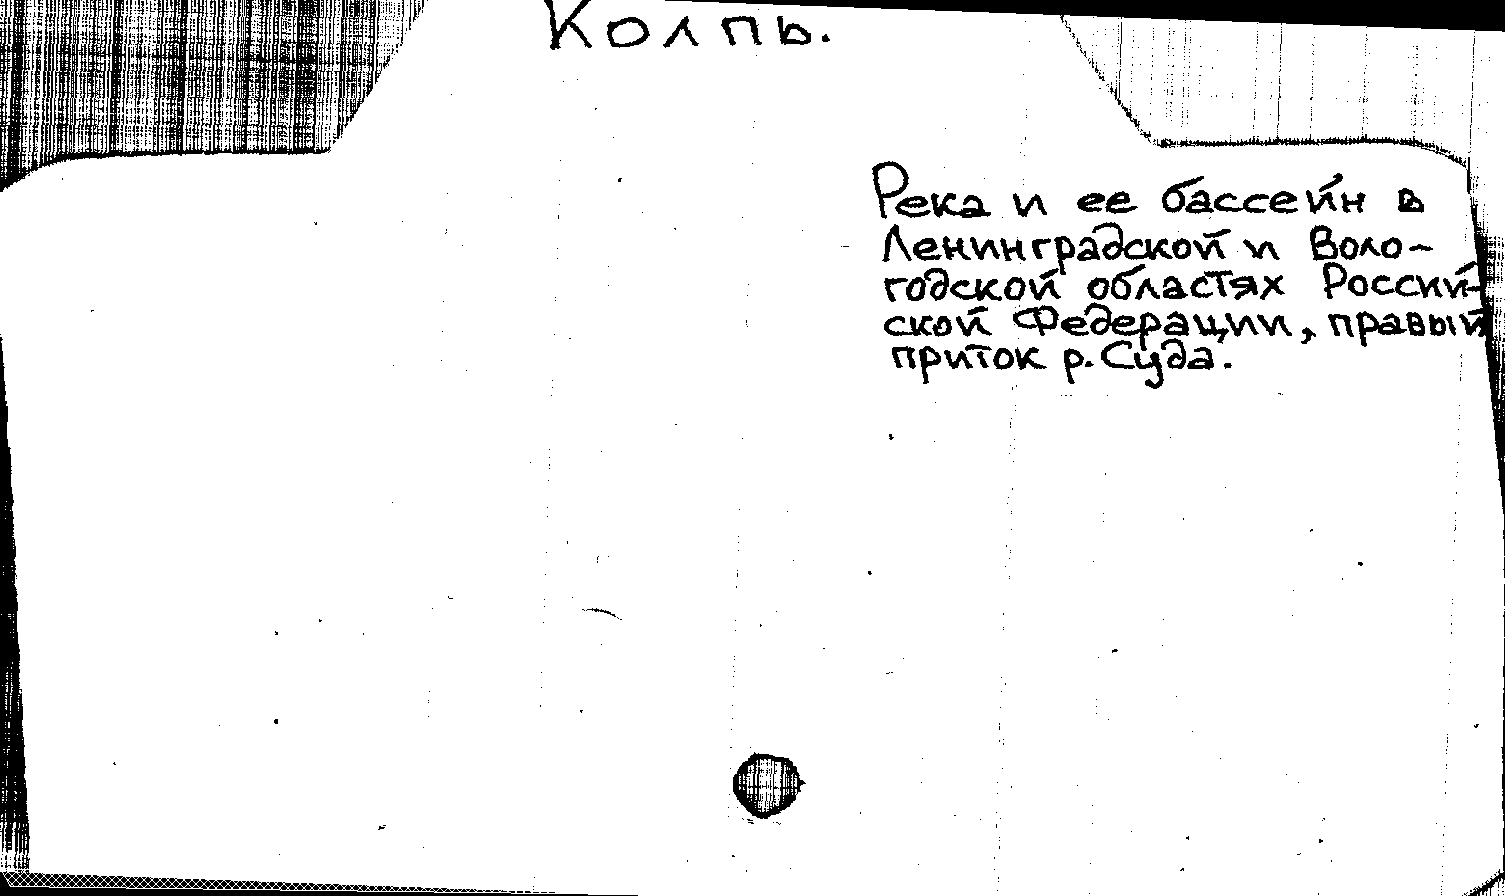 Колпь.
Река и ее бассейн в
Ленинградской и Воло-
годской областях Россий-
ской Федерации, правый
приток р. Суда.